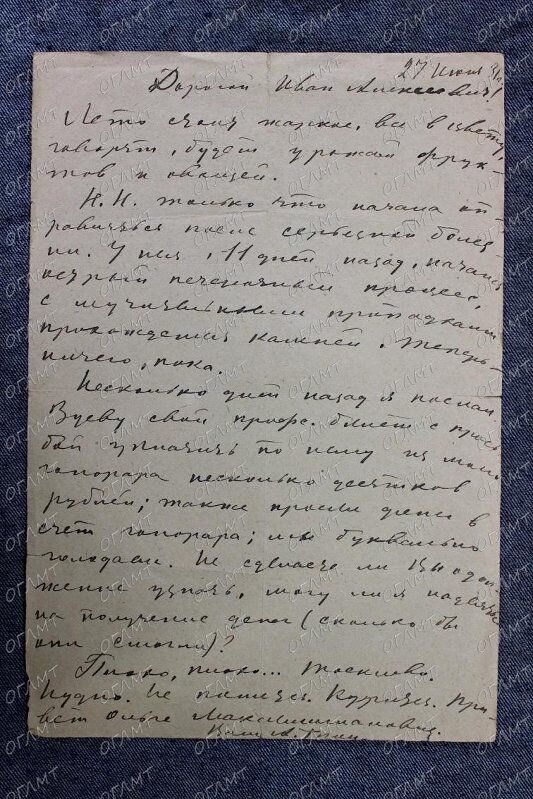 27 Июня 31 г.
Дорогой Иван Алексеевич!
Лето стоит жаркое, все в цвету,
говорят, будет урожай фрук-
тов и овощей.
Н. Н. только что начала оп-
равляться после серьезной болез-
ни. У нея, 11 дней назад, начался
острый печеночный процесс,
с мучительными припадками
прохождения камней. Теперь
ничего, пока.
Несколько дней назад я послал
Зуеву свой профс. билет с прось-
бой уплатить по нему из моего
гонорара несколько десятков
рублей; также просил денег в
счет гонорара; мы буквально
голодаем. Не сделаете ли Вы одол-
жение узнать, могу ли я надеяться
на получение денег (сколько бы
они смогли)?
Плохо, плохо... Тоскливо.
Нудно. Не пишется. Курится. При-
вет Ольге Максимилиановне.
Ваш А. Грин
ОГЛМТ